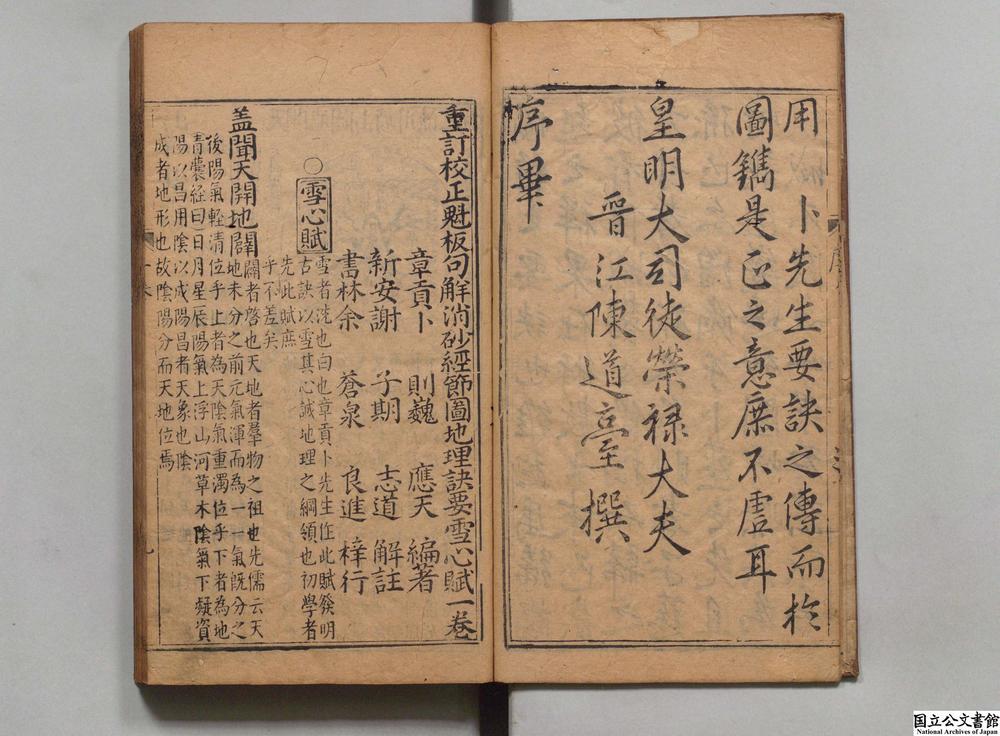 用卜先生要訣之傳而於
圖鐫是正之意庶不虛耳
皇明大司徒榮禄大夫
晉江陳道亨撰
序畢
重訂校正魁板句解消砂經節圖地理訣要雪心賦一卷
章貢卜 則巍 應天 編著
新安謝 子期 志道 解註
書林余 蒼泉 良進 梓行
○雪心賦
雪者洗也白也章貢卜先生作此賦發明
古訣以雪其心誠地理之綱領也初學者
先此賦庶
乎不差矣
盖聞天開地闢
闢者啓也天地者羣物之祖也先儒云天
地未分之前元氣渾而為一一氣既分之
後陽氣輕清位乎上者為天陰氣重濁位乎下者為地
青囊経曰日月星辰陽氣上浮山河草木陰氣下凝資
陽以昌用陰以成陽昌者天象也陰
成者地形也故陰陽分而天地位焉
国立公文書館
National Archives of Japan